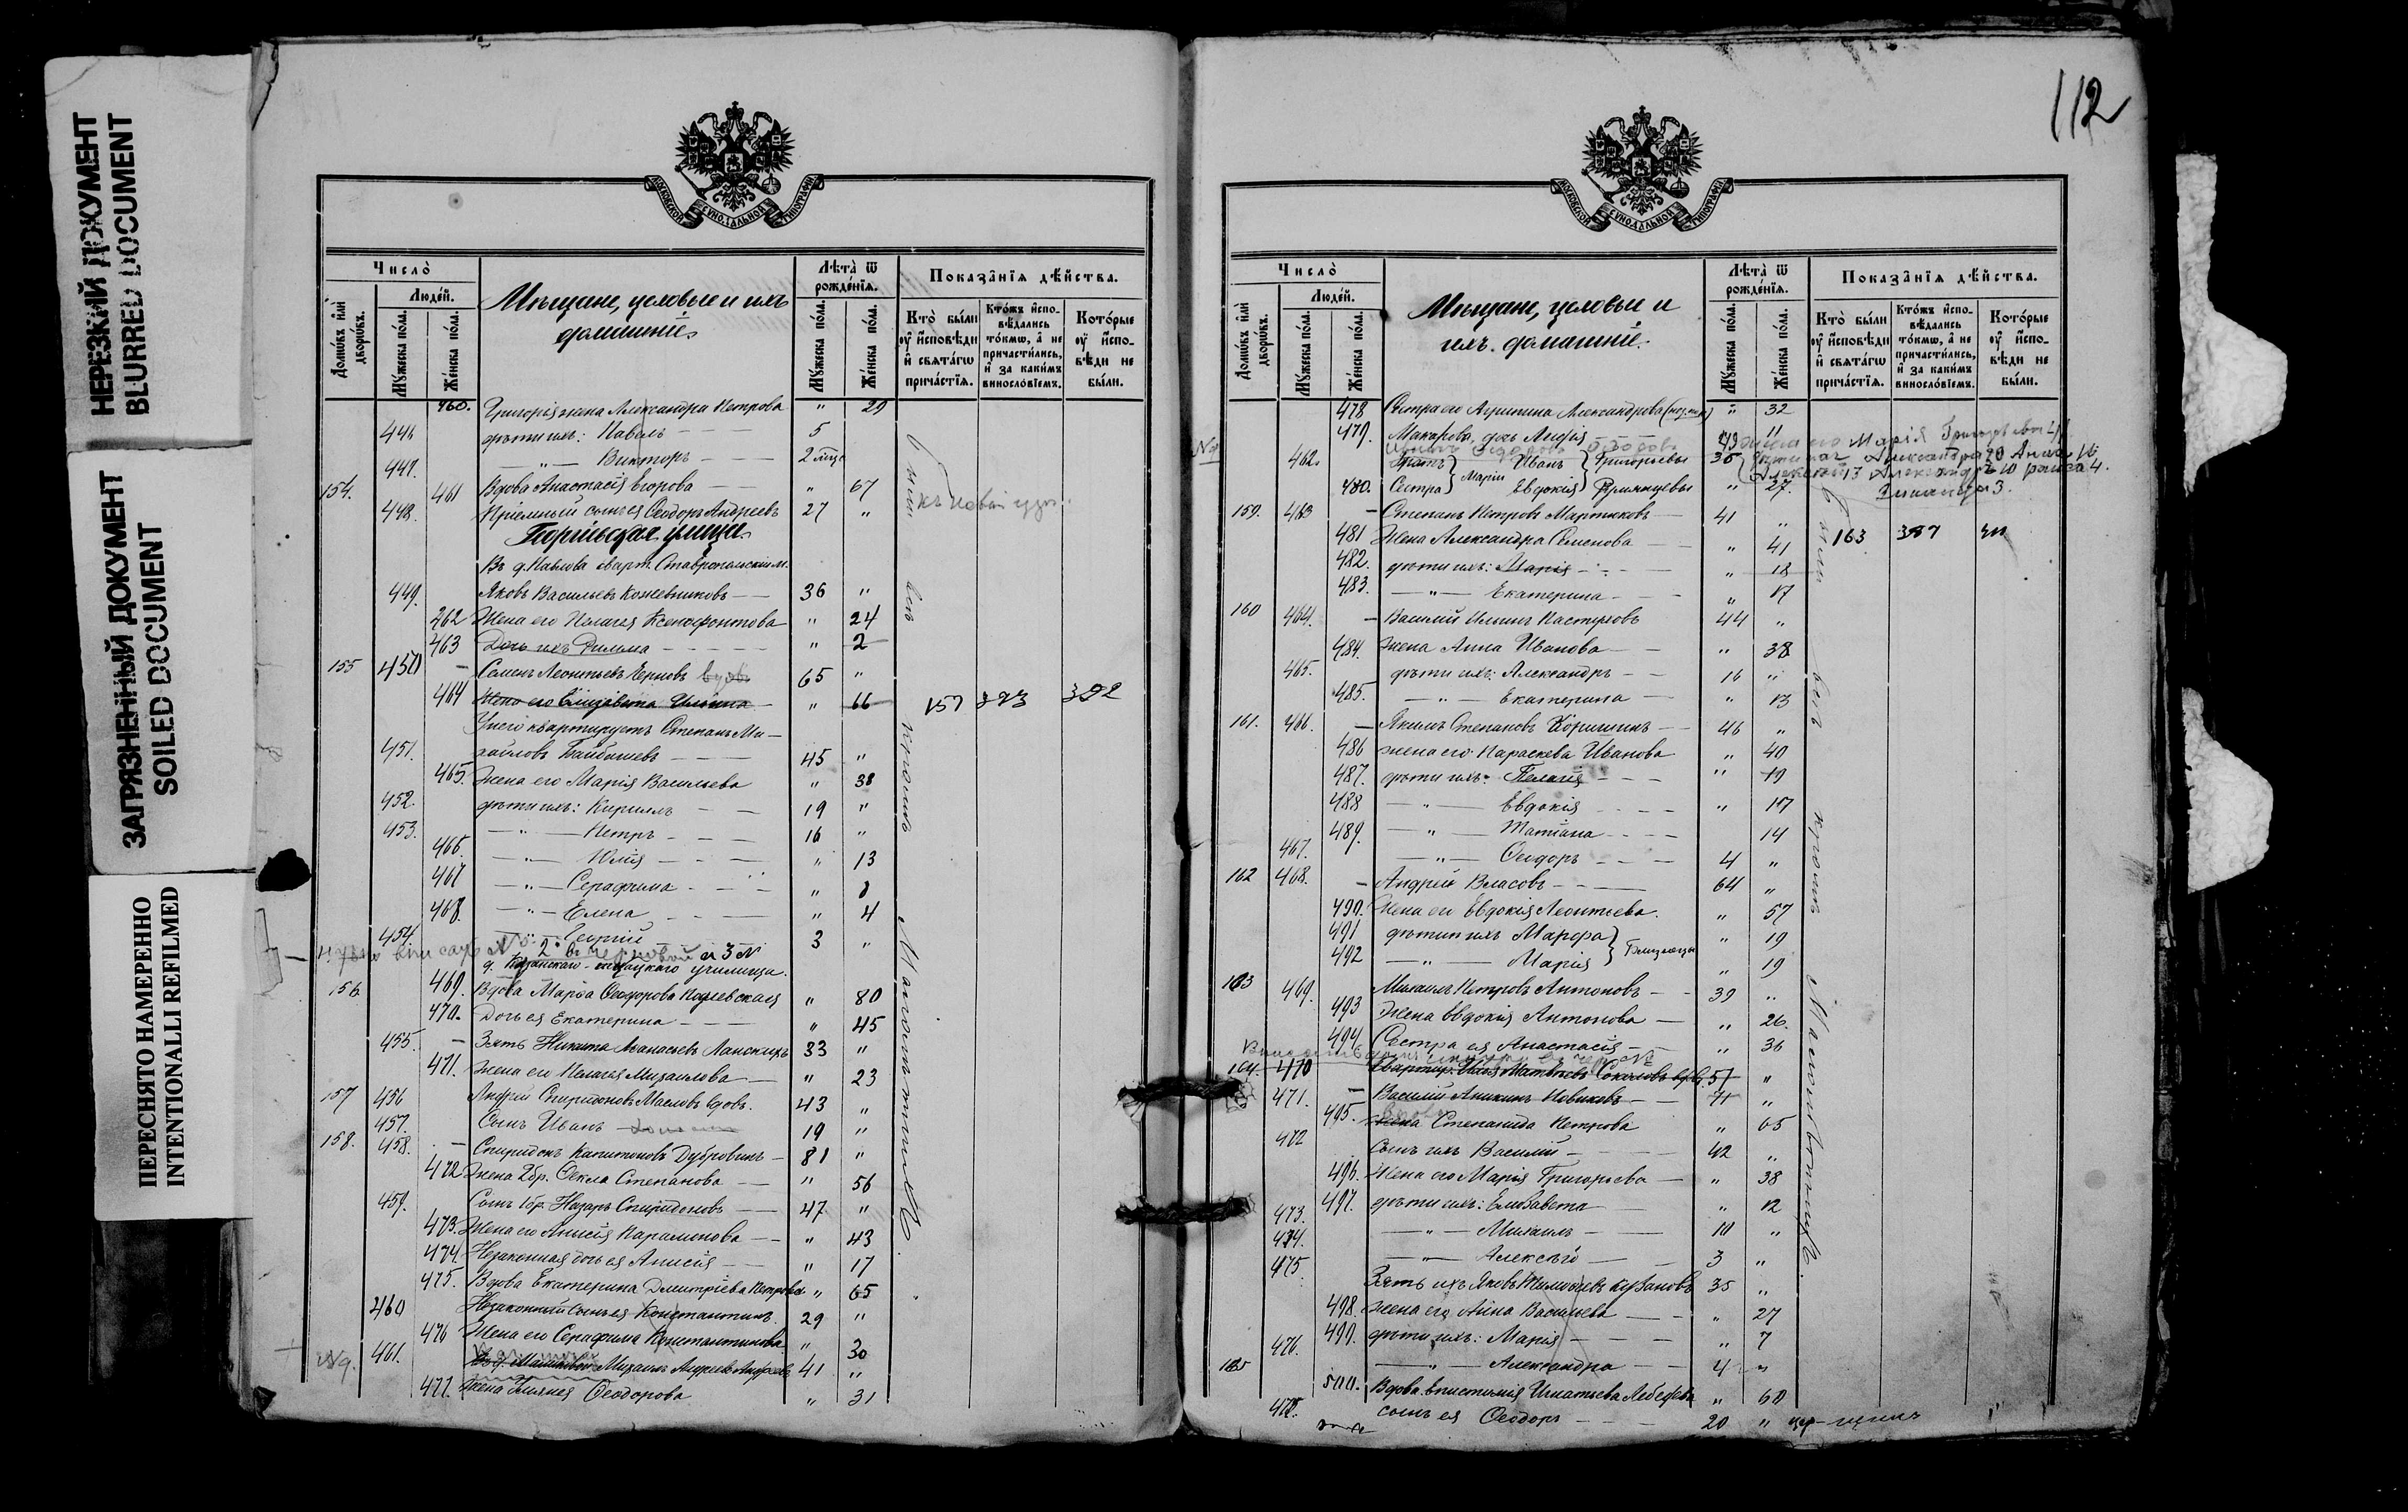 НЕРЕЗКИЙ ДОКУМЕНТ
BLURRED DOCUMENT
ЗАГРЯЗНЕННЫЙ ДОКУМЕНТ
SOILED DOCUMENT
ПЕРЕСНЯТО НАМЕРЕННО
INTENTIONALLI REFILMED
МОСКОВСКОЙ СУНОДАЛЬНОЙ ТИПОГРАФІИ
Число̀
Людей.
Домѡвъ и҆лѝ дворѡвъ.
Мꙋжеска по́ла.
Же́нска по́ла.
Мѣщане, цеховые и ихъ
домашніе.
Лѣта̀ ѿ рожде́нїѧ.
Мꙋжеска по́ла.
Же́нска по́ла.
Показа̑нїѧ дѣ́йства.
Кто̀ бы́ли ᲂу҆ и҆сповѣди и҆ свѧта́гѡ прича́стїѧ.
Кто́жъ и҆спо-вѣдались то́кмѡ, а҆ не причасти́лись, и҆ за каки́мъ винослові́емъ.
Кото́рые ᲂу҆ и҆спо-вѣди не бы́ли.
460. Григорія жена Александра Петрова " 29
446 дѣти ихъ: Павелъ 5
447. " Викторъ 2 мѣс
154. 461 Вдова Анастасія Егорова " 67
448. Пріемный сынъ ея Ѳеодоръ Андреевъ 27 "
улица.
Въ д. Павлова кварт. Ставропольскій м.
449. Яковъ Васильевъ Кожевниковъ 36 "
462 Жена его Пелагея Ксенофонтова " 24
463 Дочь ихъ Римма " 2
155 450 Семенъ Леонтьевъ Черновъ вдовъ 65 "
464 Жена его Елизавета Ильина " 66 157 393 392
У него квартируетъ Степанъ Ми-
451. хайловъ Байбашевъ 45 "
465. Жена его Марія Васильева " 38
452. дѣти ихъ: Кириллъ 19 "
453. " Петръ 16 "
466. " Юлія " 13
467 " Серафима " 8
468. " Елена " 4
454 " Георгій 3 "
д. Казанскаго училища.
156. 469. Вдова Марѳа Ѳеодорова " 80
470. Дочь ея Екатерина " 45
455. Зять Никита Аѳанасьевъ Ланскихъ 33 "
471. Жена его Пелагея Михаилова " 23
157 456 Андрей Спиридоновъ Масловъ вдовъ. 43 "
457. Сынъ Иванъ 19 "
158. 458. Спиридонъ Капитоновъ Дубровинъ 81 "
472 Жена 2 бр. Ѳекла Степанова " 56
459. Сынъ 1 бр. Назаръ Спиридоновъ 47 "
473. Жена его Анисія Парамонова " 43
474. Незаконная дочь ея Анисія " 17
475. Вдова Екатерина Дмитріева Петрова " 65
460 Незаконный сынъ ея Константинъ. 29 "
476 Жена его Серафима Константинова " 30
461. Михаилъ Андреевъ Андреевъ 41 "
477. Жена Ѳеодорова " 31
112
МОСКОВСКОЙ СУНОДАЛЬНОЙ ТИПОГРАФІИ
Число̀
Людей.
Домѡвъ и҆лѝ дворѡвъ.
Мꙋжеска по́ла.
Же́нска по́ла.
Мѣщане, цеховые и
ихъ домашніе.
Лѣта̀ ѿ рожде́нїѧ.
Мꙋжеска по́ла.
Же́нска по́ла.
Показа̑нїѧ дѣ́йства.
Кто̀ бы́ли ᲂу҆ и҆сповѣди и҆ свѧта́гѡ прича́стїѧ.
Кто́жъ и҆спо-вѣдались то́кмѡ, а҆ не причасти́лись, и҆ за каки́мъ винослові́емъ.
Кото́рые ᲂу҆ и҆спо-вѣди не бы́ли.
478 Сестра его Агрипина Александрова " 32
479. Макарова, дочь " 11
462. Братъ Иванъ Григорьевы 35
480. Сестра Марія Евдокія Румянцевы " 27.
159. 463 Степанъ Петровъ Мартяковъ 41 "
481 Жена Александра Семенова " 41 163 397
482. дѣти ихъ: Марія " 18
483. " Екатерина " 17
160 464. Василій Ильинъ Пастуховъ 44 "
484. Жена Анна Иванова " 38
465. дѣти ихъ: Александръ 16 "
485. " Екатерина " 13
161. 466. Якимъ Степановъ 46 "
486 жена его Параскева Иванова " 40
487. дѣти ихъ: Пелагея " 19
488 " Евдокія " 17
489. " Татіана 14
467. " Ѳеодоръ 4 "
162 468. Андрей Власовъ 64 "
490. Жена его Евдокія Леонтьева. " 57
491 дѣти ихъ Марѳа " 19
492 " Марія Близнецы " 19
163 469. Михаилъ Петровъ Антоновъ 39 "
493 Жена Евдокія Антонова " 26.
494. Сестра ея Анастасія " 36
164. 470 Квартир. Илья Матвѣевъ Соколовъ вдов. 57 "
471. Василій Аникинъ Новиковъ 71 "
495. жена Степанида Петрова " 65
472 Сынъ ихъ Василій 42 "
496. Жена его Марія Григорьева " 38
497. дѣти ихъ: Елизавета " 12
473. " Михаилъ 10 "
474. " Алексѣй 3 "
475 Зять ихъ Яковъ 35 "
498. жена его Анна Васильева " 27
499. дѣти ихъ: Марія " 7
476. " Александра 4 "
165 500. Вдова Епистимія Игнатьева Лебедева " 60
477. сынъ ея Ѳеодоръ 20 "